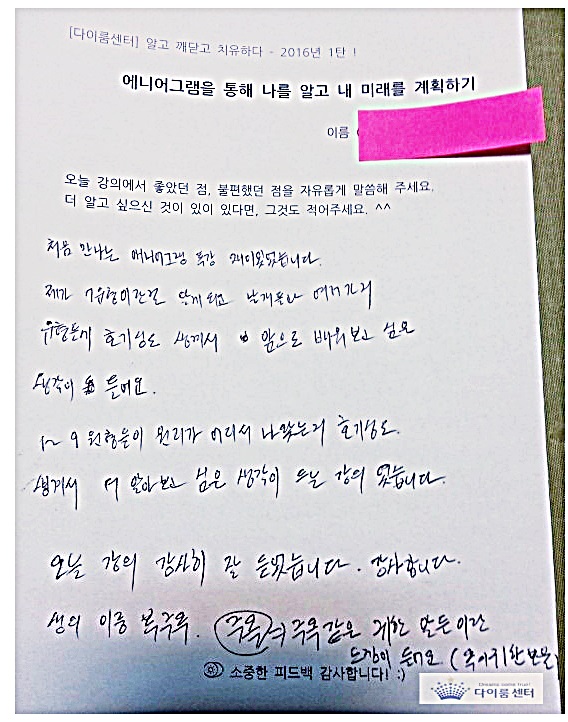 [다이룸센터] 알고 깨닫고 치유하다 - 2016년 1탄 !
에니어그램을 통해 나를 알고 내 미래를 계획하기
이름
오늘 강의에서 좋았던 점, 불편했던 점을 자유롭게 말씀해 주세요.
더 알고 싶으신 것이 있이 있다면, 그것도 적어주세요. ^^
처음 만나는 에니어그램 특강 재미있었습니다.
제가 7유형이란걸 알게되고 날개온라 여러가지
유형든지 호기심도 생겨서 앞으로 배워보고 싶은
생각이 들어요.
1~9 원형들이 원리가 어디서 나왔는지 호기심도.
생겨서 더 알아보고 싶은 생각이 드는 강의 였습니다.
오늘 강의 감사히 잘 들었습니다. 감사합니다.
생의 이중 복주옥. 주옥 주옥같은 귀한 말든이란
느낌이 들어요
소중한 피드백 감사합니다! :)
Dreams come true!
다이룸센터